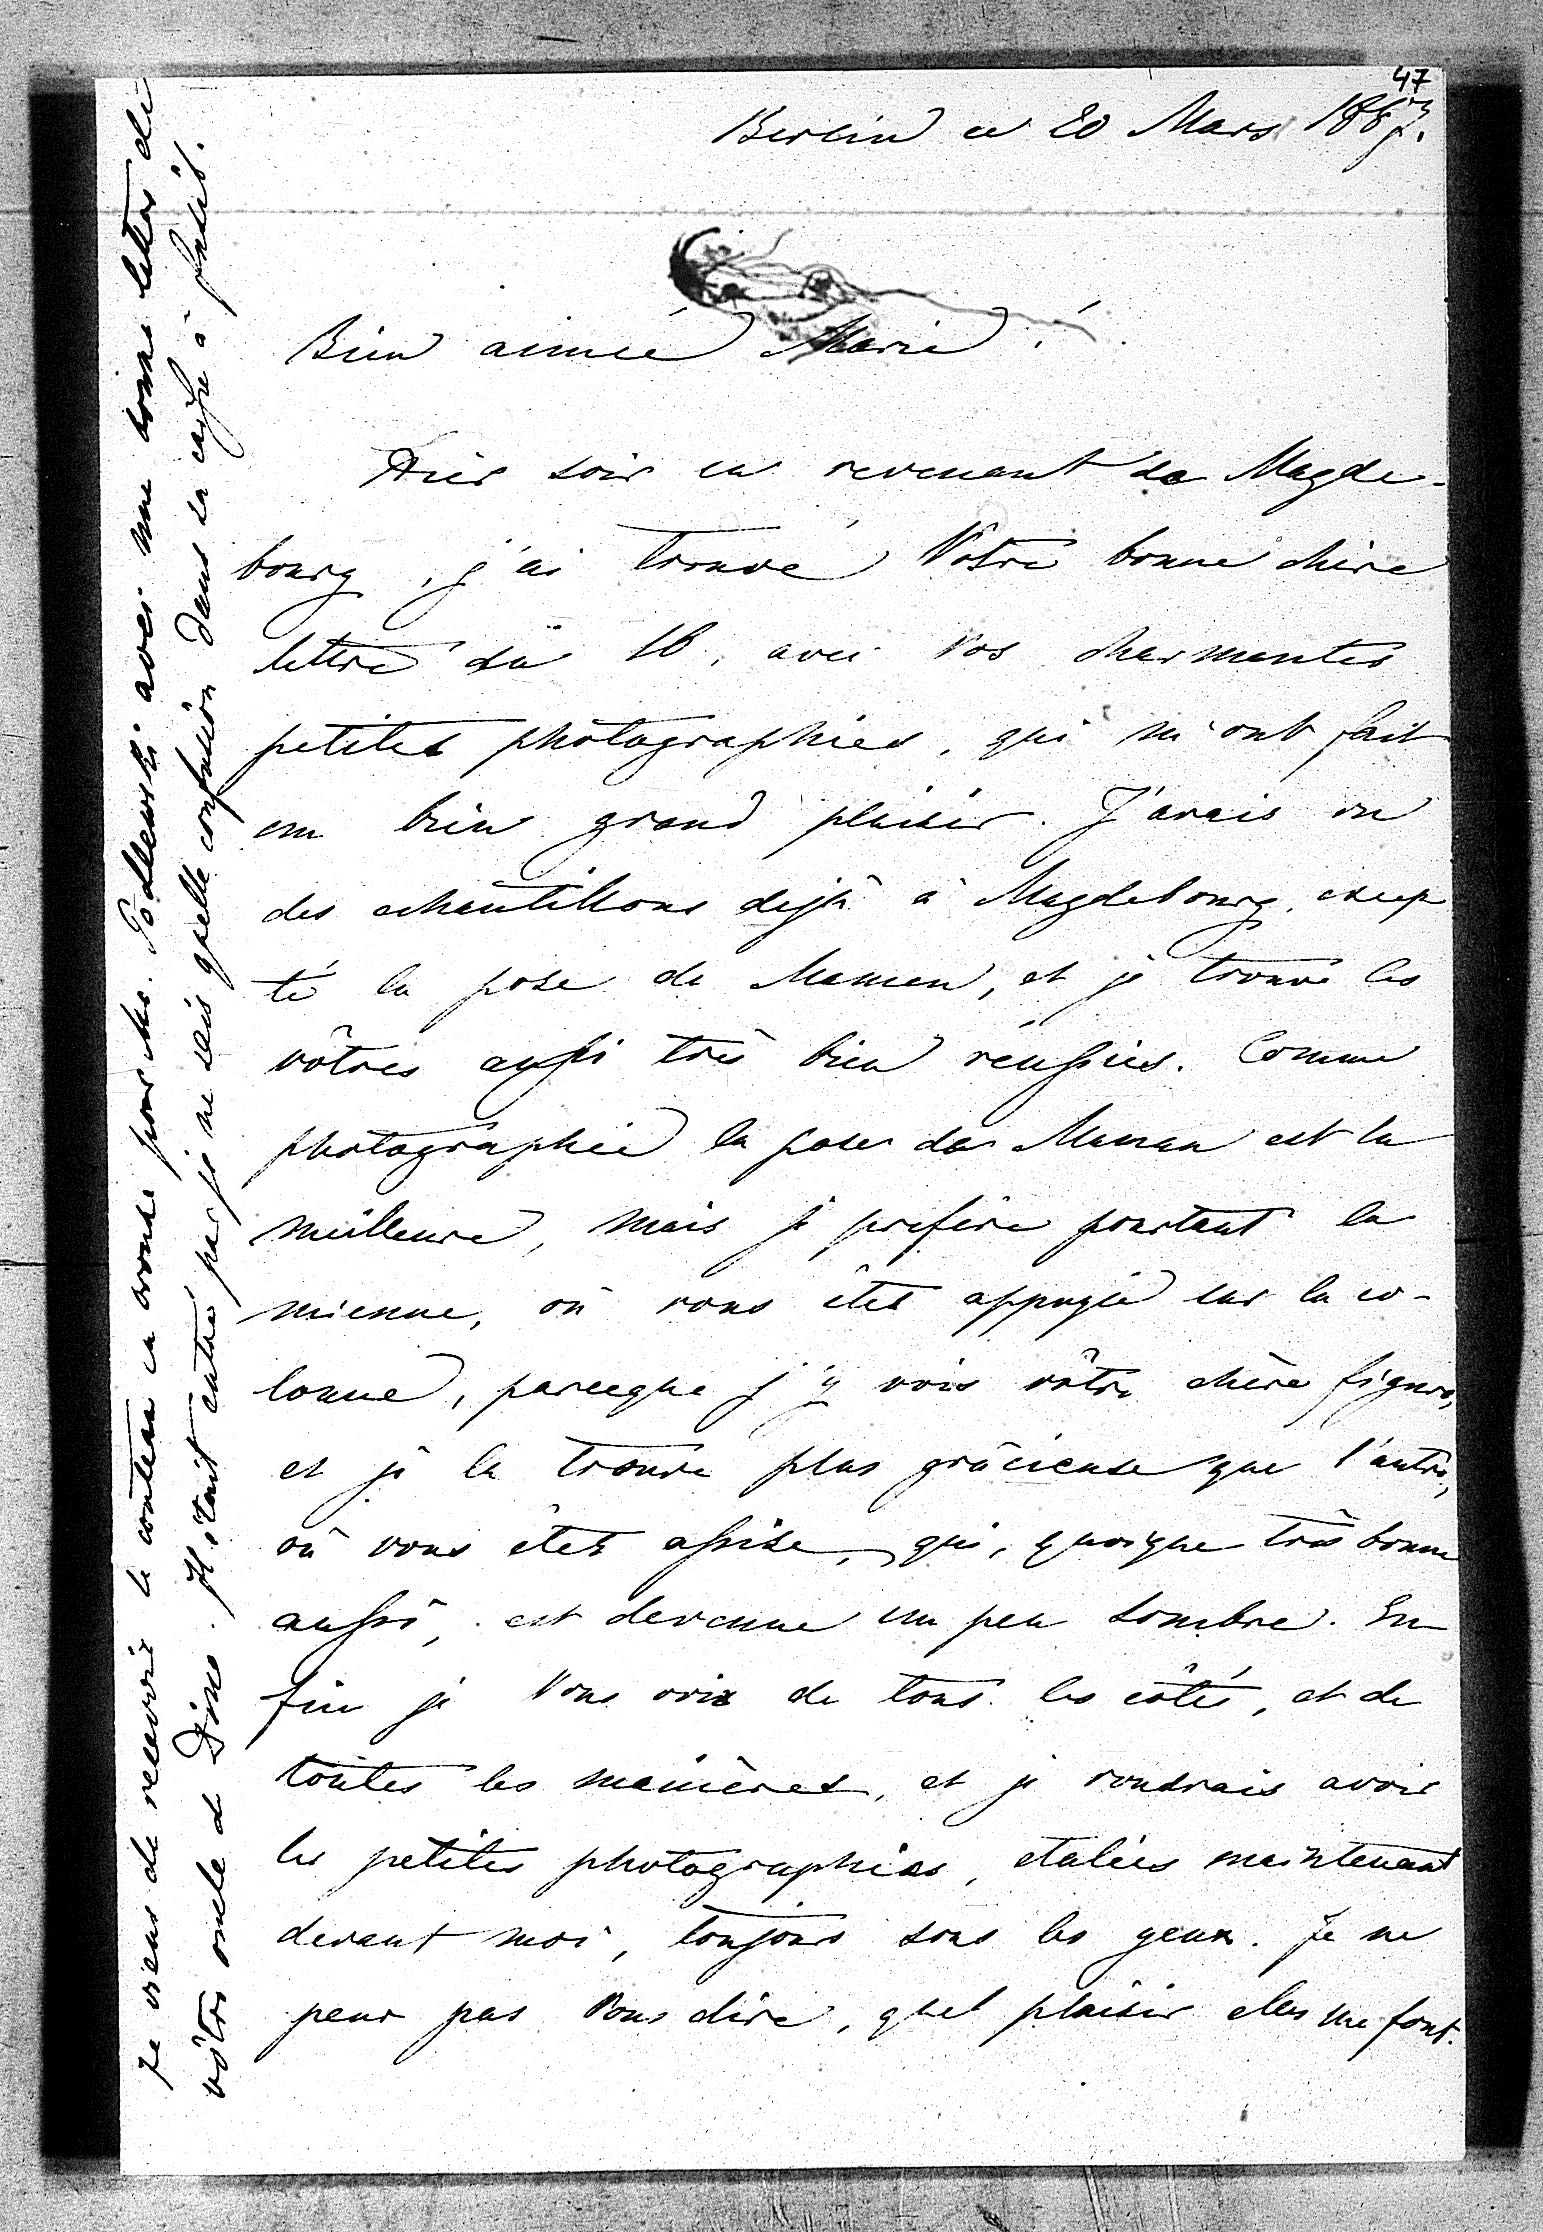 47
Berlin ce 20 Mars 1867.
Bien aimée Marie!
Hier soir en revenant de Magde-
bourg, j'ai trouvé Votre bonne chère
lettre du 16, avec Vos charmantes
petites photographies, qui m'ont fait
un bien grand plaisir. J'avais vu
des echantillons dejà à Magdebourg, excep
té la pose de Maman, et je trouve les
vôtres aussi très bien réussies. Comme
photographie la pose de Maman est la
meilleure, mais je prefère pourtant la
mienne, où vous êtes appuyée sur la co-
lonne, parceque j'y vois vôtre chère figure,
et je la trouve plus grâcieuse que l'autre,
où vous êtes assise, qui, quoique très bonne
aussi, est devenue un peu sombre. En
fin je Vous vois de tous les côtés, et de
toutes les manières, et je voudrais avoir
les petites photographies, etalées maintenant
devant moi, toujours sous les yeux. Je ne
peux pas Vous dire, quel plaisir elles me font.
Je viens de recevoir le couteau en bronze pour Podlewski avec une bonne lettre de
vôtre oncle de Dino. Il était entré par je ne sais quelle confusion dans la caisse à fusil.